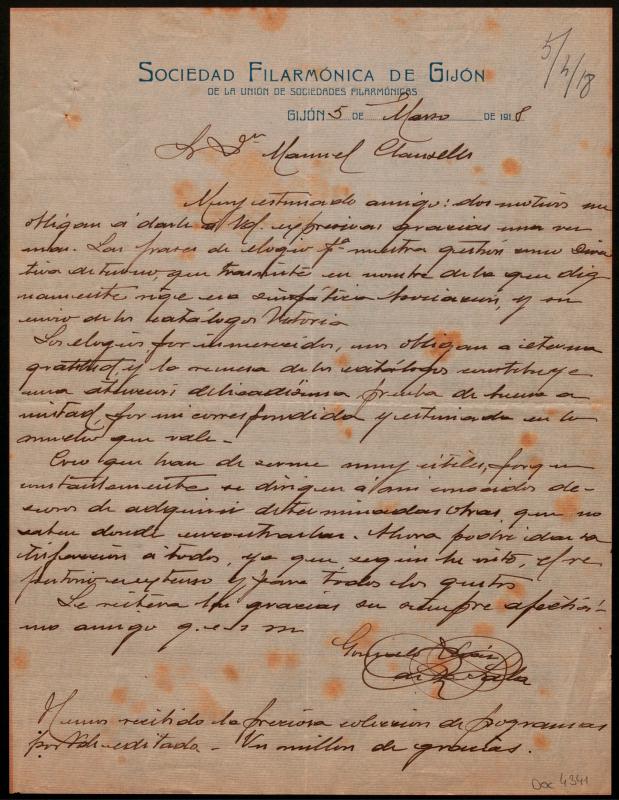 5/4/18
SOCIEDAD FILARMÓNICA DE GIJÓN
DE LA UNIÓN DE SOCIEDADES FILARMÓNICAS
GIJÓN 5 DE Marzo DE 1918
Sr Dn Manuel Clausells
Muy estimado amigo: dos motivos me
obligan á darle a Vd. expresivas gracias una vez
mas. Las frases de elogio pª nuestra gestión como Direc
tiva de turno, que trasmite en nombre de la que dig
namente rige esa simpática Asociación, y su
envio de los catálogos Vitoria
Los elogios por inmerecidos, nos obligan a eterna
gratitud, y la remesa de los catálogos constituye
una atención delicadísima prueba de buena a
mistad, por mi correspondida y estimada en lo
mucho que vale -
Creo que han de serme muy utiles, porque
constantemente se dirigen á mi conocidos de-
seosos de adquirir determinadas obras que no
saben donde encontrarlas. Ahora podré dar sa
tisfaccion a todos, ya que segun he visto, el re
pertorio es extenso y para todos los gustos
Le reitera las gracias su siempre afectísi-
mo amigo q.e.s.m
Gonzalo
Hemos recibido la preciosa coleccion de programas
por Vds editada - Un millon de gracias.
Doc 4341